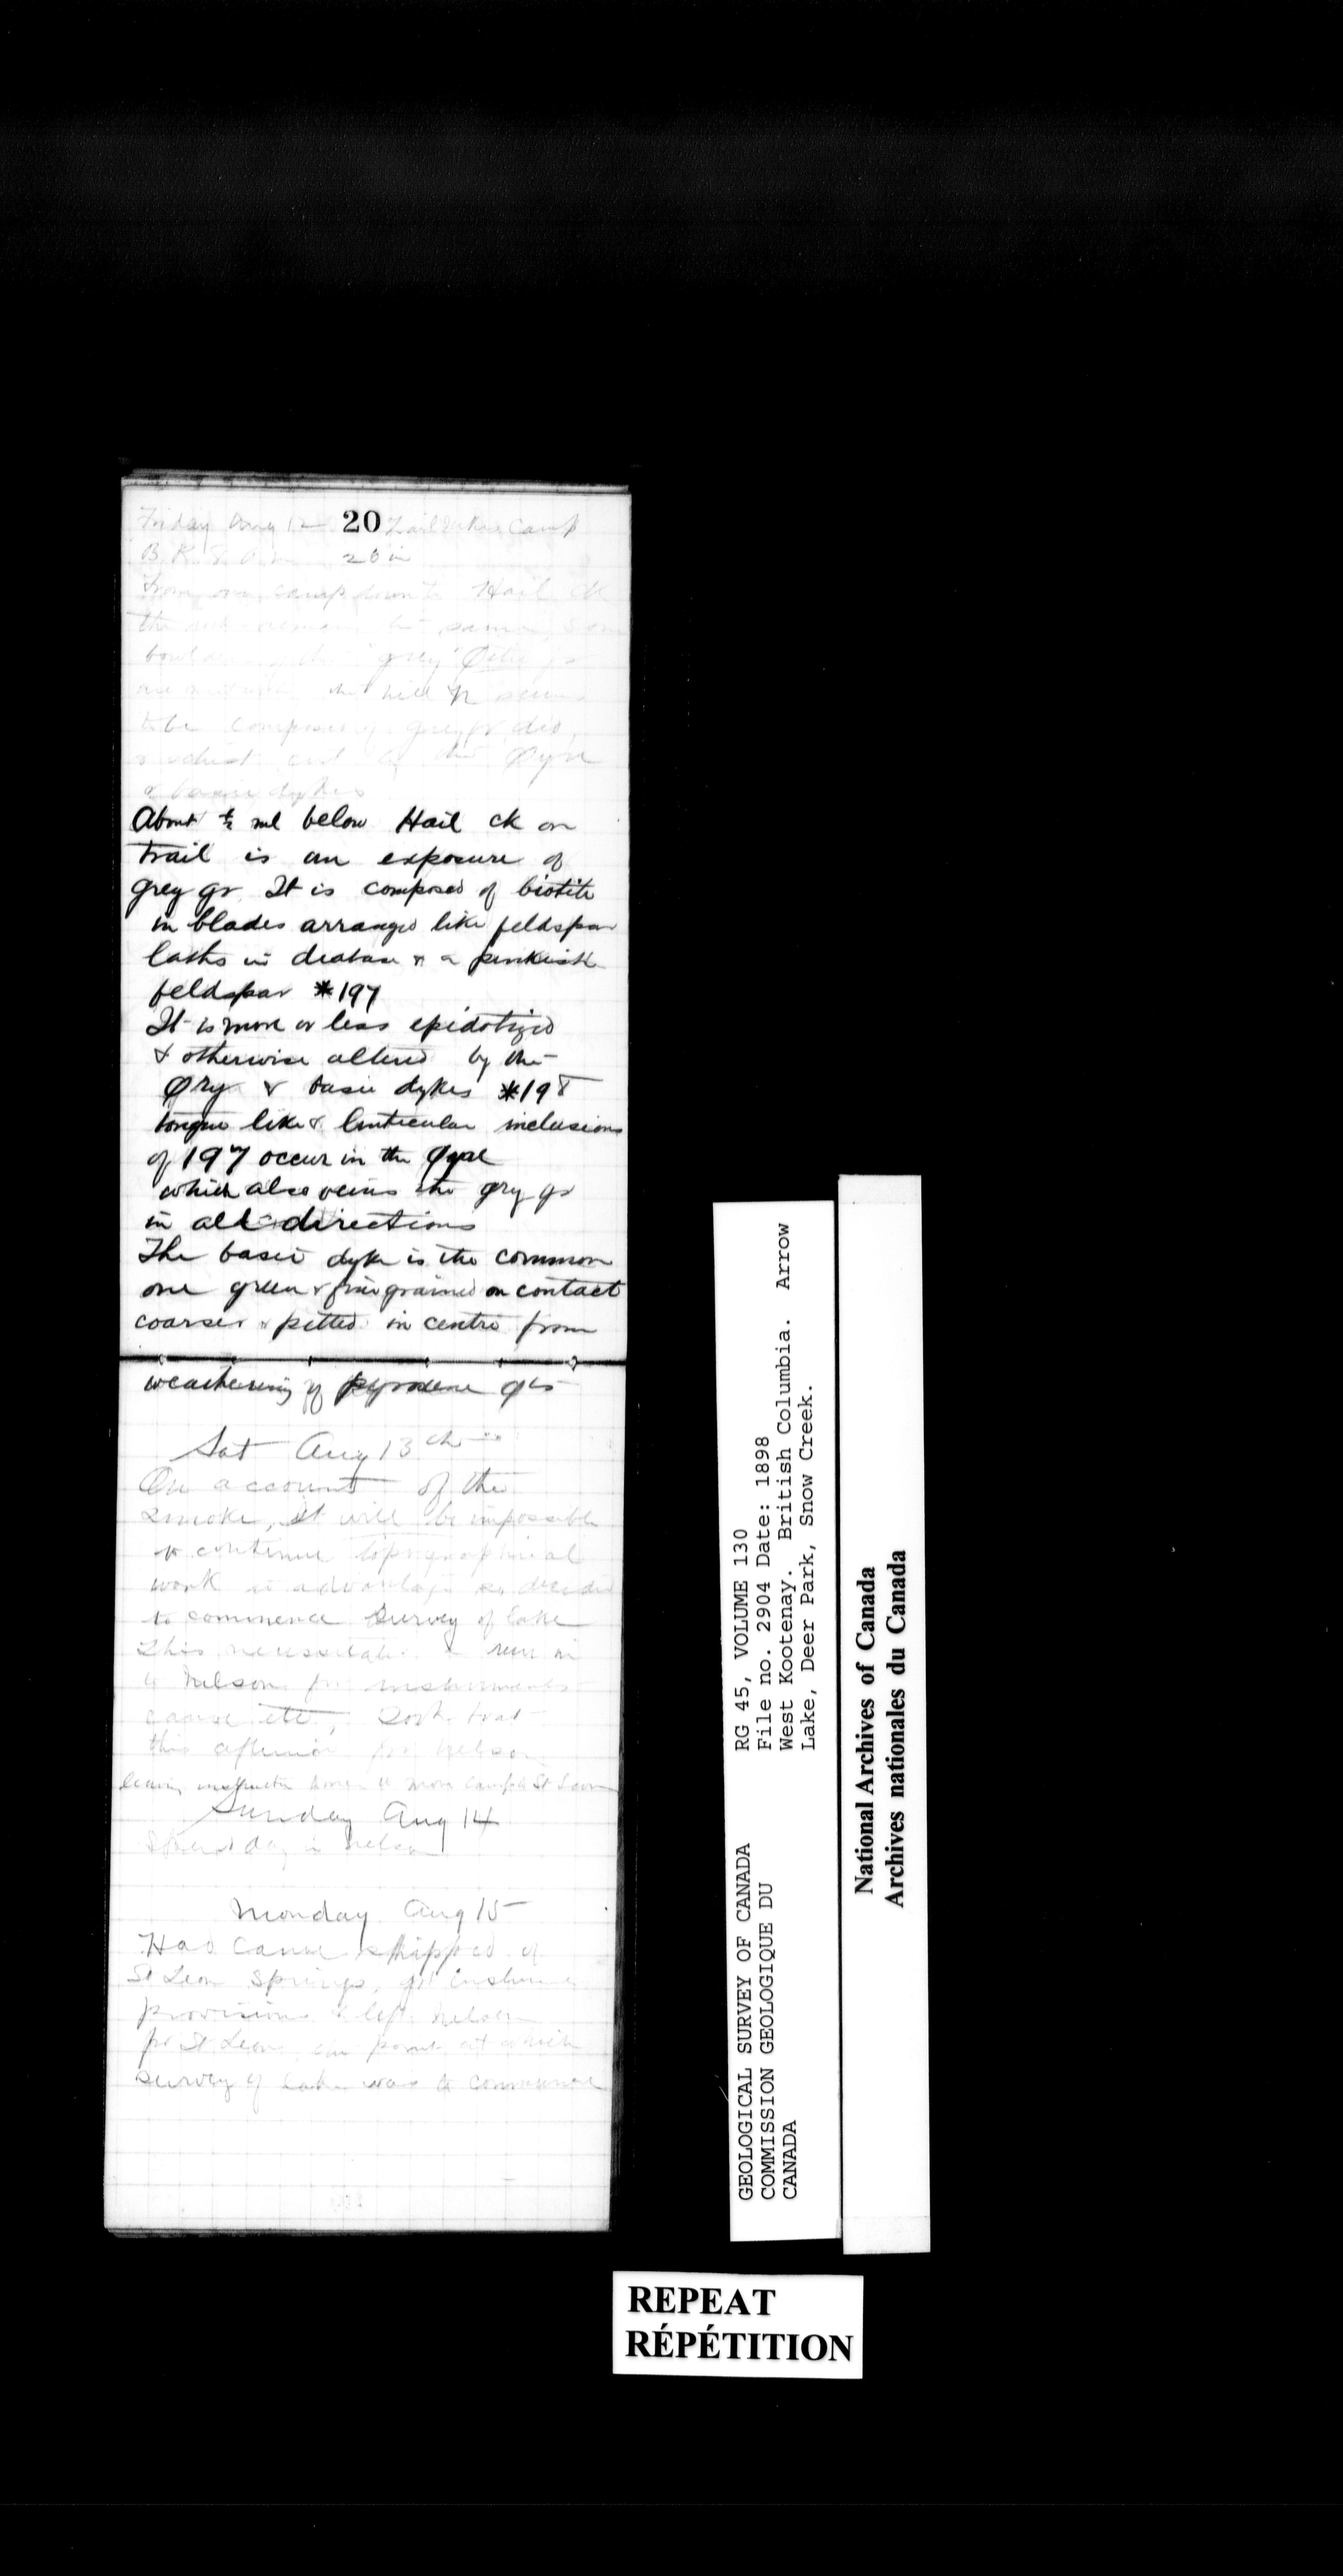 Friday Aug 12 20 Camp
B. K. 8 26 in
From our camp down to Hail Ck
the same, Some
"grey"
are the hill
to be composed of grey gr, dio,
& schist cut by the
& basic dykes
About ½ ml below Hail ck on
trail is an exposure of
grey gr. It is composed of biotite
in blades arranged like feldspar
laths in diabase & a pinkish
feldspar *197
It is more or less epidotized
& otherwise altered by the
Øry & basic dykes *198
tongue like & lenticular inclusions
of 197 occur in the
which also veins the gry gr
in all directions
The basic dyke is the common
one green & fine grained on contact
coarser & pitted in centre from
weathering of pyroxene
Sat Aug 13th
On account of the
smoke, it will be impossible
to continue topographical
work to advantage so decided
to commence survey of lake
This necessitates a run in
to Nelson for instruments
canoe etc, Took boat
this afternoon for Nelson
leaving instructions to move camp to St Leon
Sunday Aug 14
Spent day in Nelson
Monday Aug 15
Had canoe shipped
St Leon Springs, got
provisions & left Nelson
for St Leon, point at which
survey of lake was to commence
GEOLOGICAL SURVEY OF CANADA
COMMISSION GEOLOGIQUE DU
CANADA
RG 45, VOLUME 130
File no. 2904 Date: 1898
West Kootenay. British Columbia. Arrow
Lake, Deer Park, Snow Creek.
National Archives of Canada
Archives nationales du Canada
REPEAT
RÉPÉTITION